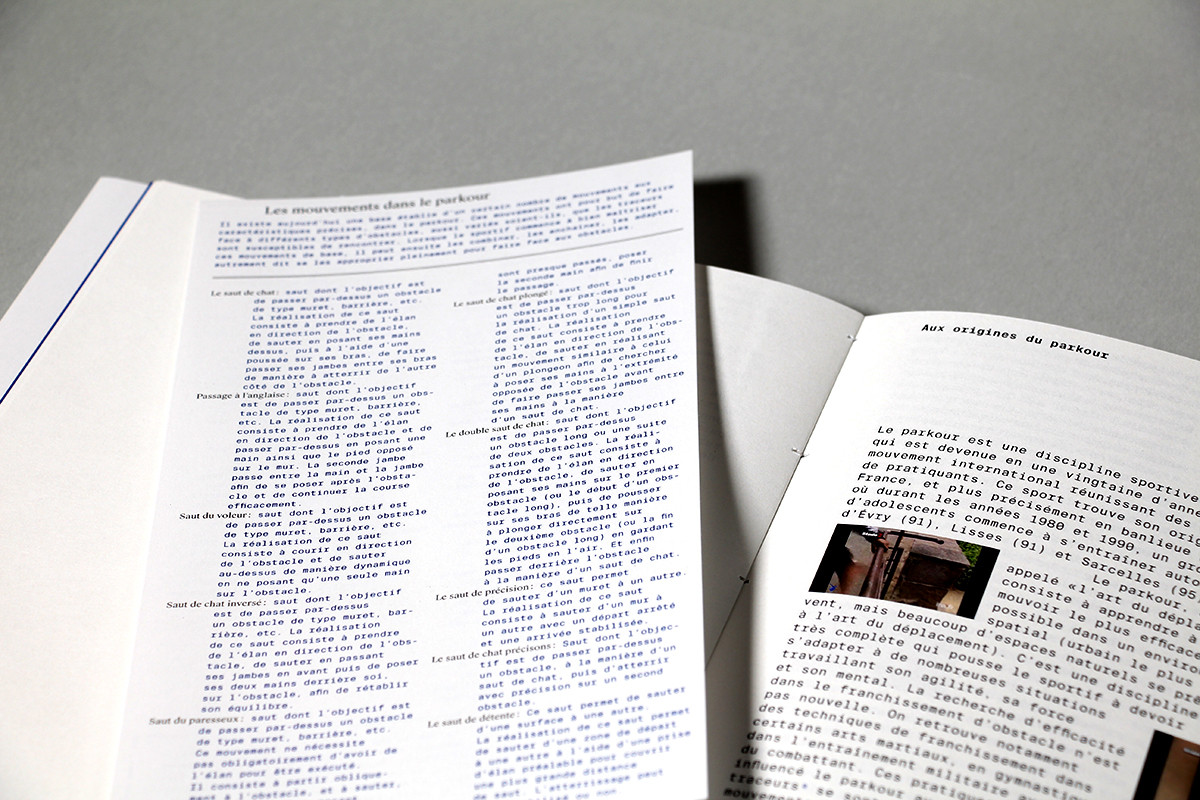 Les mouvements dans le parkour
Il existe aujourd'hui une base établie d'un certain nombre de mouvements aux
caractéristiques précises, dans le parkour. Ces mouvements ont pour but de faire
face à différents types d'obstacles, aussi variés soient-ils, que les traceurs
sont susceptibles de rencontrer. Lorsque le sportif commence à bien maîtriser
ces mouvements de base, il peut ensuite les combiner, les enchaîner, les adapter,
autrement dit se les approprier pleinement pour faire face aux obstacles.
Le saut de chat : saut dont l'objectif est
de passer par-dessus un obstacle
de type muret, barrière, etc.
La réalisation de ce saut
consiste à prendre de l'élan
en direction de l'obstacle,
de sauter en posant ses mains
dessus, puis à l'aide d'une
poussée sur ses bras, de faire
passer ses jambes entre ses bras
de manière à atterrir de l'autre
côté de l'obstacle.
Passage à l'anglaise : saut dont l'objectif
est de passer par-dessus un obs-
tacle de type muret, barrière,
etc. La réalisation de ce saut
consiste à prendre de l'élan
en direction de l'obstacle et de
passer par-dessus en posant une
main ainsi que le pied opposé
sur le mur. La seconde jambe
passe entre la main et la jambe
afin de se poser après l'obsta-
cle et de continuer la course
efficacement.
Saut du voleur : saut dont l'objectif est
de passer par-dessus un obstacle
de type muret, barrière, etc.
La réalisation de ce saut
consiste à courir en direction
de l'obstacle et de sauter
au-dessus de manière dynamique
en ne posant qu'une seule main
sur l'obstacle.
Saut de chat inversé : saut dont l'objectif
est de passer par-dessus
un obstacle de type muret, bar-
rière, etc. La réalisation
de ce saut consiste à prendre
de l'élan en direction de l'obs-
tacle, de sauter en passant
ses jambes en avant puis de poser
ses deux mains derrière soi,
sur l'obstacle, afin de rétablir
son équilibre.
Saut du paresseux : saut dont l'objectif est
de passer par-dessus un obstacle
de type muret, barrière, etc.
Ce mouvement ne nécessite
pas obligatoirement d'avoir de
l'élan pour être exécuté.
Il consiste à partir oblique-
ment à l'obstacle, et à sauter
sont presque passés, poser
la seconde main afin de finir
le passage.
Le saut de chat plongé : saut dont l'objectif
est de passer par-dessus
un obstacle trop long pour
la réalisation d'un simple saut
de chat. La réalisation
de ce saut consiste à prendre
de l'élan en direction de l'obs-
tacle, de sauter en réalisant
un mouvement similaire à celui
d'un plongeon afin de chercher
à poser ses mains à l'extrémité
opposée de l'obstacle avant
de faire passer ses jambes entre
ses mains à la manière
d'un saut de chat.
Le double saut de chat : saut dont l'objectif
est de passer par-dessus
un obstacle long ou une suite
de deux obstacles. La réali-
sation de ce saut consiste à
prendre de l'élan en direction
de l'obstacle, de sauter en
posant ses mains sur le premier
obstacle (ou le début d'un obs-
tacle long), puis de pousser
sur ses bras de telle manière
à plonger directement sur
le deuxième obstacle (ou la fin
d'un obstacle long) en gardant
les pieds en l'air. Et enfin
passer derrière l'obstacle
à la manière d'un saut de chat.
Le saut de précision : ce saut permet
de sauter d'un muret à un autre.
La réalisation de ce saut
consiste à sauter d'un mur à
un autre avec un départ arrêté
et une arrivée stabilisée.
Le saut de chat précisons : Saut dont l'objec-
tif est de passer par-dessus
un obstacle, à la manière d'un
saut de chat, puis d'atterrir
avec précision sur un second
obstacle.
Le saut de détente : Ce saut permet de sauter
d'une surface à une autre.
La réalisation de ce saut permet
de sauter d'une zone de départ
à une autre à l'aide d'une prise
d'élan préalable pour
une plus grande distance
L'atterrissage peut
ou non
Aux origines du parkour
Le parkour est une discipline sportive
qui est devenue en une vingtaine d'anné
mouvement international réunissant des
de pratiquants. Ce sport trouve son orig
France, et plus précisément en banlieue
où durant les années 1980 et 1990, un gro
d'adolescents commence à s'entraîner auto
d'Évry (91), Lisses (91) et Sarcelles (95
Le parkour,
appelé «l'art du dépla
consiste à apprendre à
mouvoir le plus efficace
possible dans un environ
spatial (urbain le plus
vent, mais beaucoup d'espaces naturels se pr
à l'art du déplacement). C'est une discipline
très complète qui pousse le sportif à devoir
s'adapter à de nombreuses situations
travaillant son agilité, sa force
et son mental. La recherche d'efficacité
dans le franchissement d'obstacle n'est
pas nouvelle. On retrouve notamment
des techniques de franchissement dans
certains arts martiaux, en gymnasti
dans l'entraînement militaire
du combattant. Ces pratiques
influencé le parkour
traceurs* se sont
mouvements